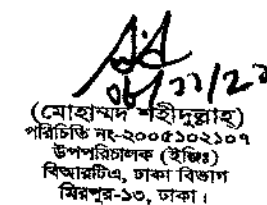 ০৮/১১/২২
(মোহাম্মদ শহীদুল্লাহ্)
পরিচিতি নং-২০০৫১০২১০৭
উপপরিচালক (ইঞ্জিঃ)
বিআরটিএ, ঢাকা বিভাগ
মিরপুর-১৩, ঢাকা।